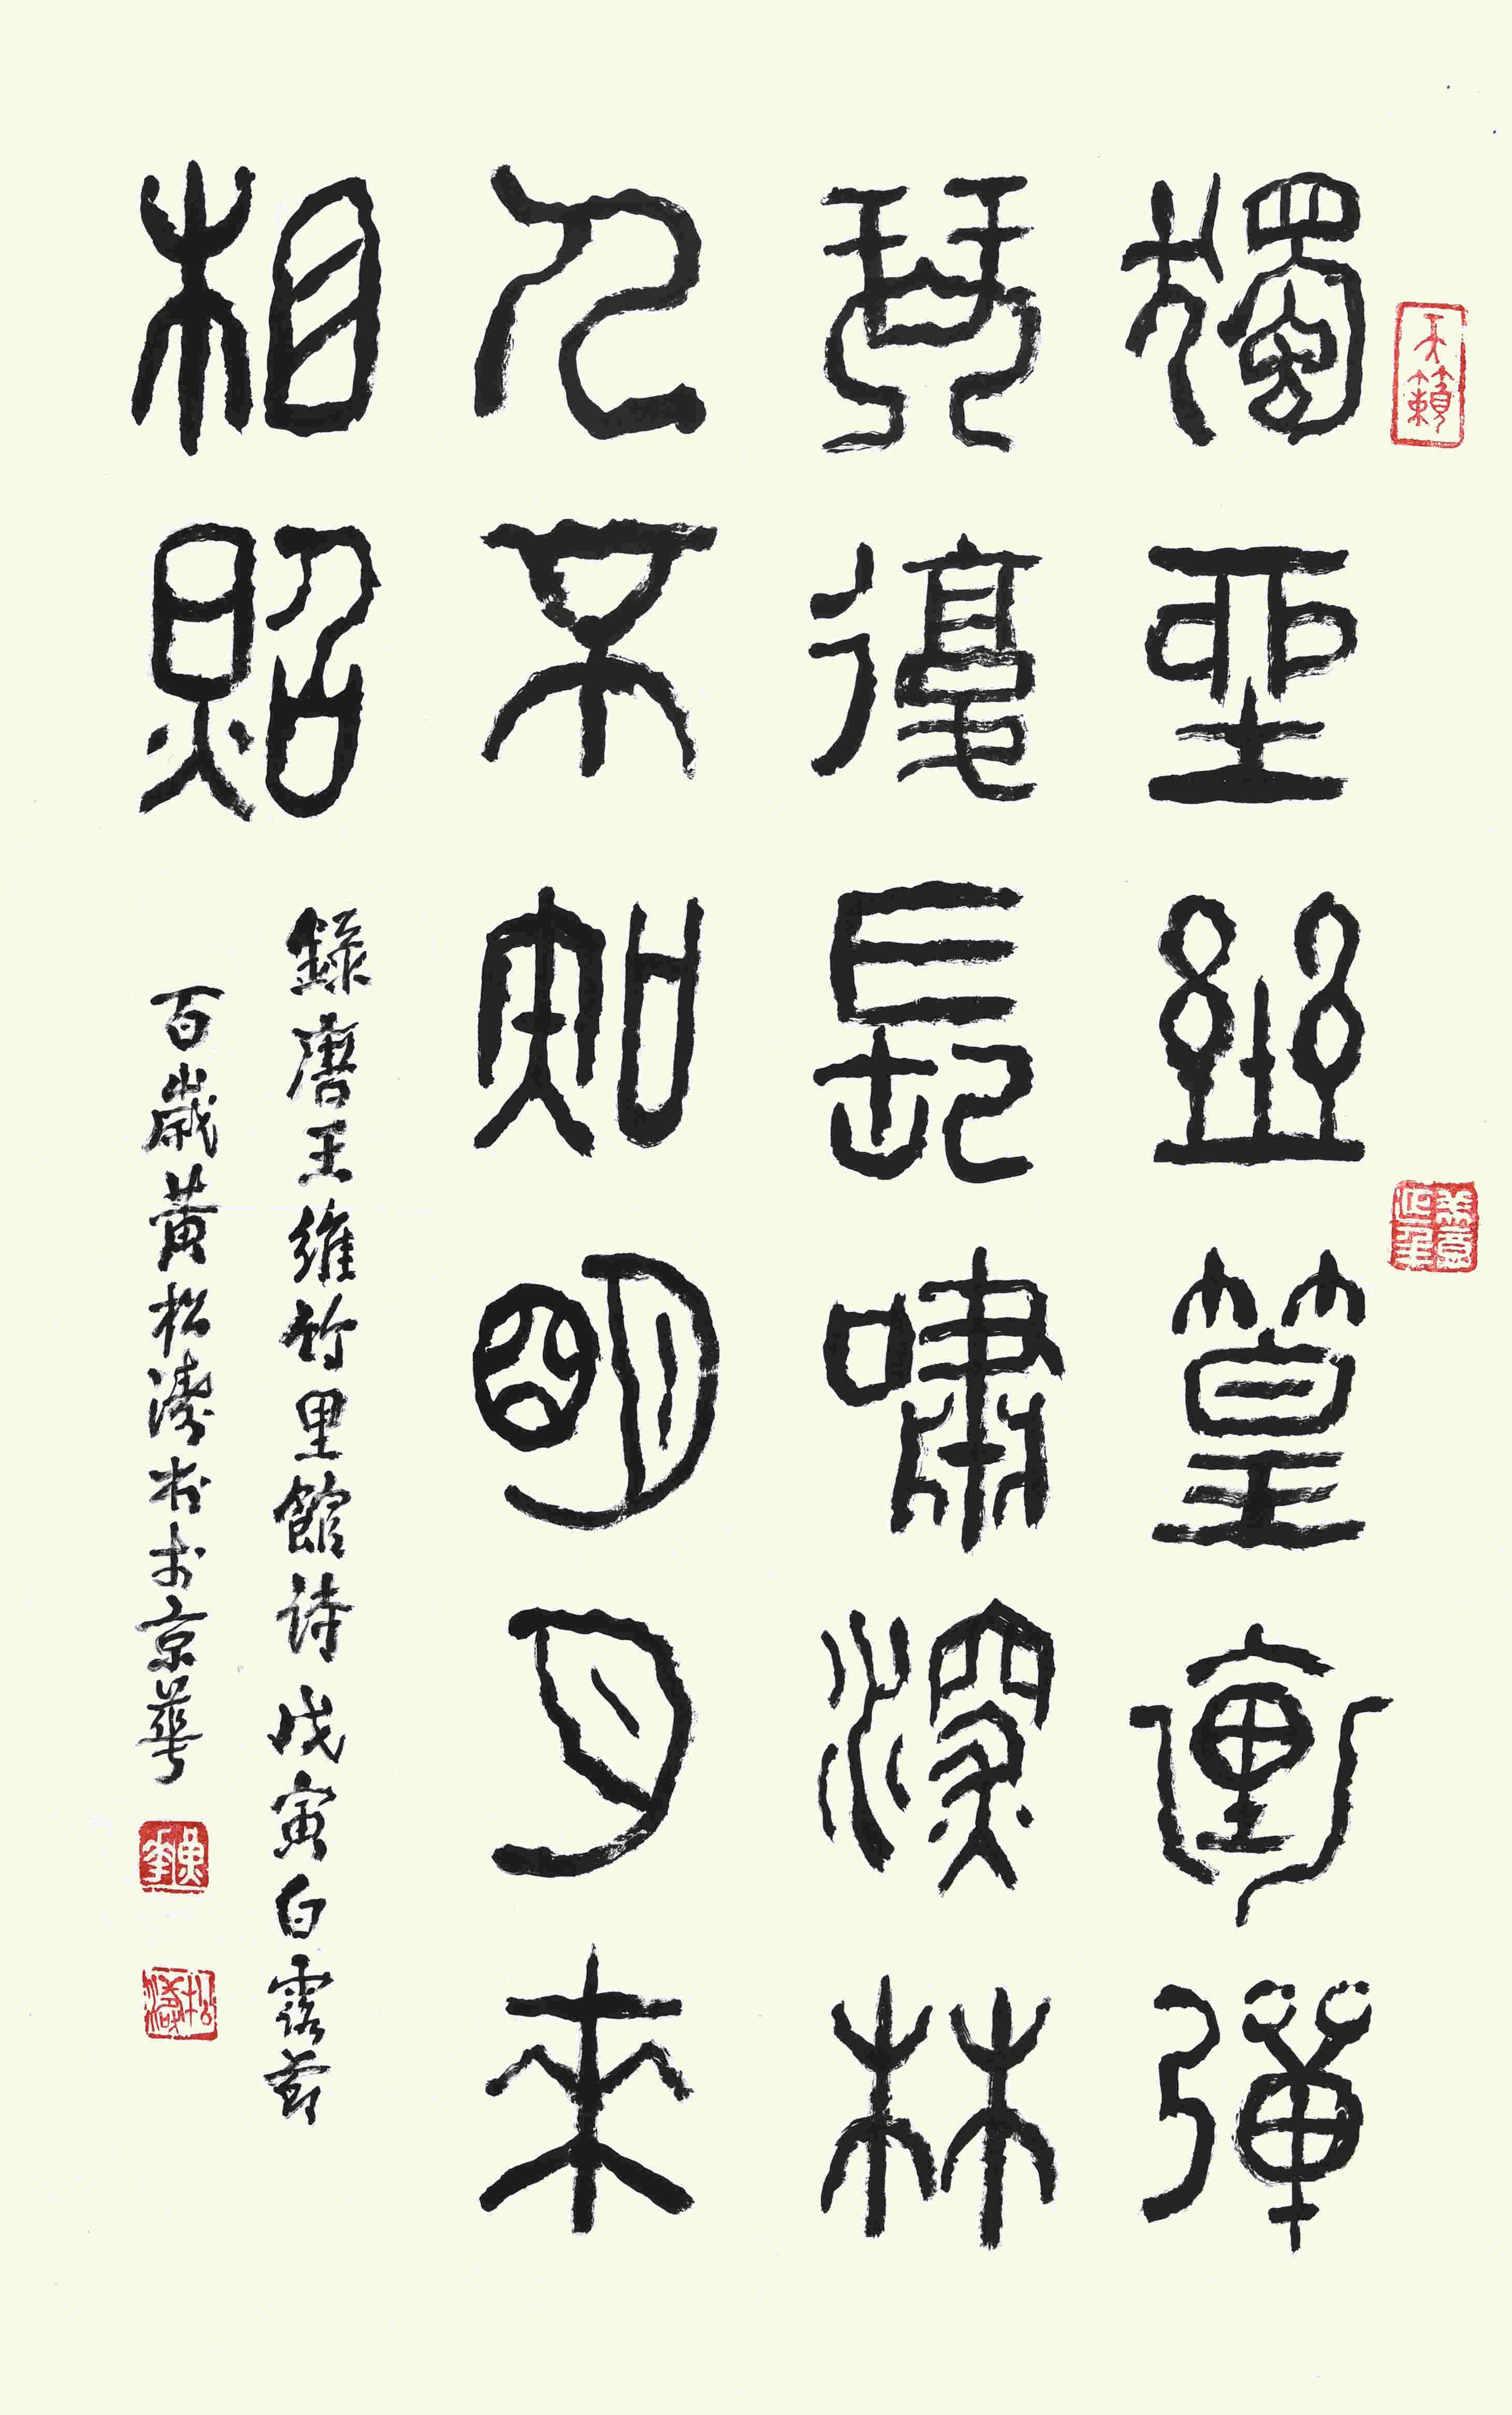 天籟
美意延年
獨坐幽篁裏彈
琴復長嘯深林
人不知明月來
相照
錄唐王維竹里館詩戊寅白露節
百歲黃松濤京華
松濤